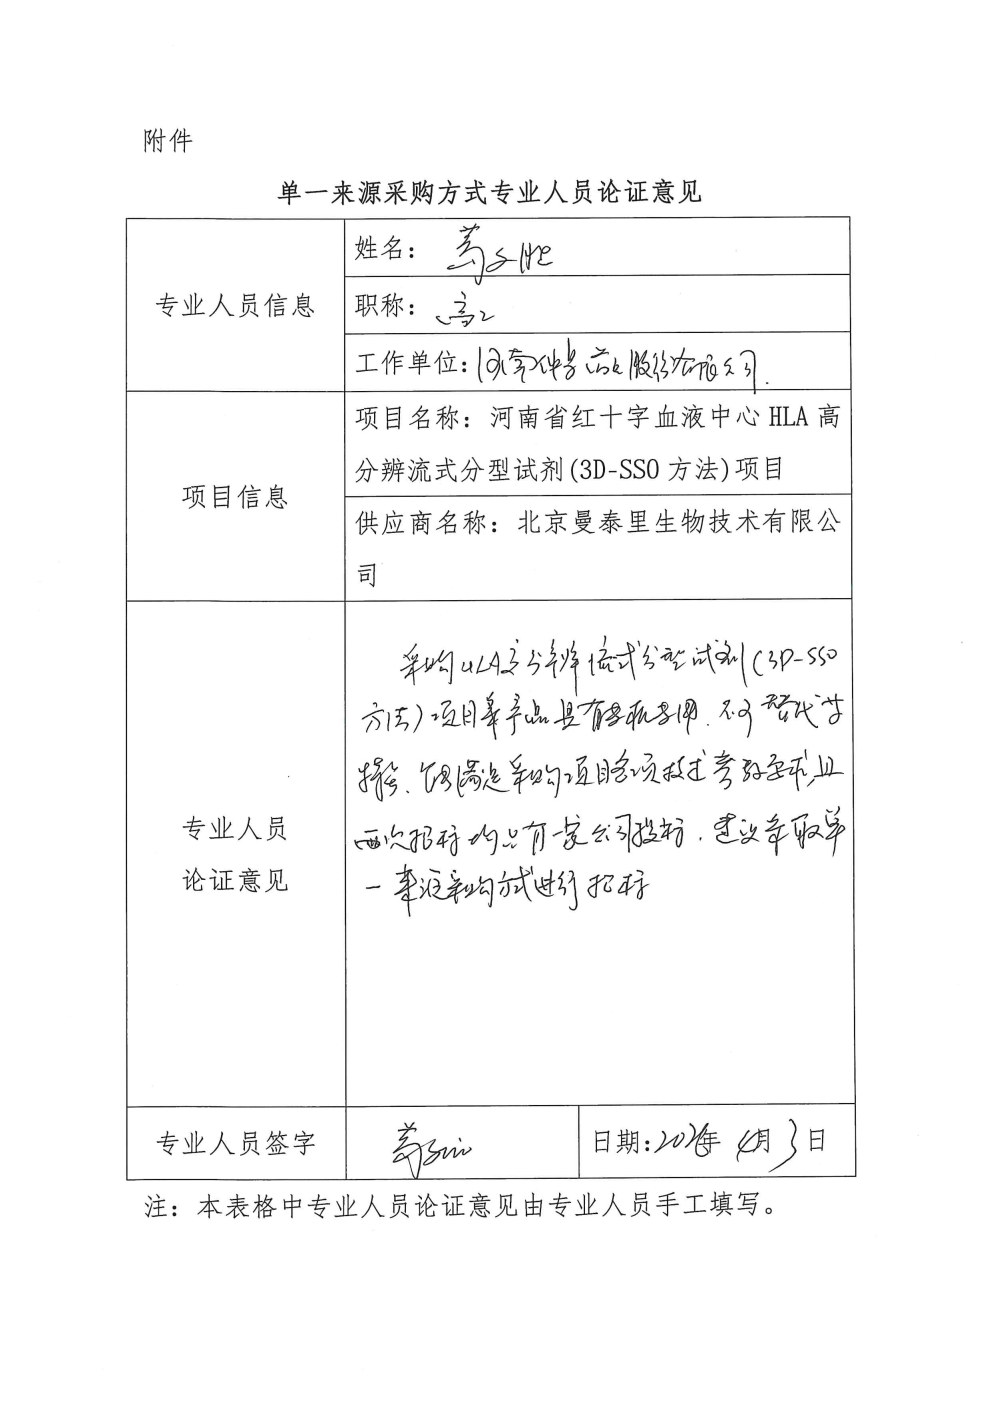 附件
单一来源采购方式专业人员论证意见
专业人员信息
姓名：
职称：高工
工作单位：河南仲景药业股份有限公司.
项目信息
项目名称：河南省红十字血液中心 HLA 高
分辨流式分型试剂(3D-SSO 方法)项目
供应商名称：北京曼泰里生物技术有限公
司
专业人员
论证意见
采购HLA高分辨流式分型试剂(3D-SSO
方法)项目单产品具有专机专用、不可替代
能满足采购项目各项技术参数要求,且
两次招标均只有一家公司投标，建议采取单
一来源采购方式进行招标
专业人员签字
日期:年 4月3日
注：本表格中专业人员论证意见由专业人员手工填写。